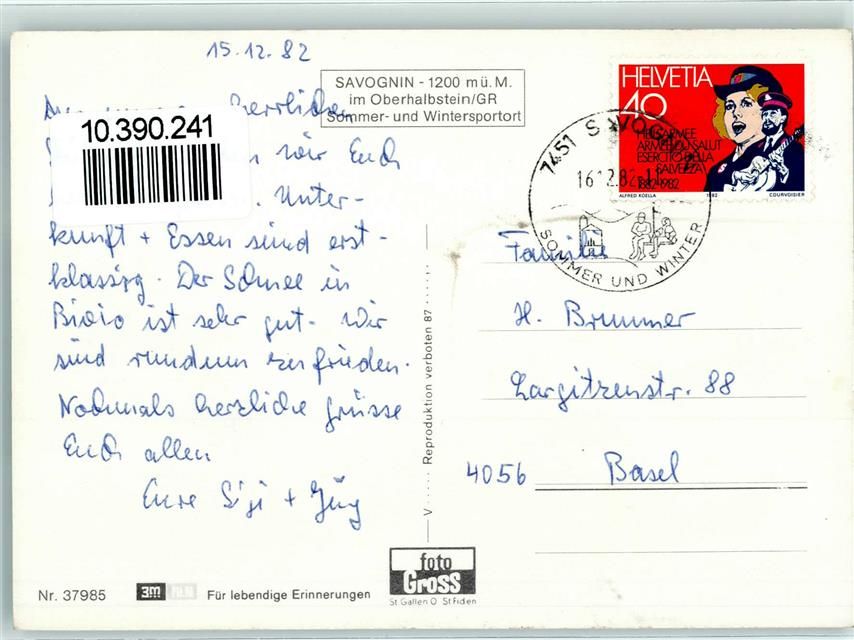 15.12.82
SAVOGNIN - 1200 m ü. M.
im Oberhalbstein/GR
Sommer- und Wintersportort
herrlichen
10.390.241
wir Euch
Unter-
kunft + Essen sind erst-
klassig. Der Schnee in
Bivio ist sehr gut. Wir
sind rundum zufrieden.
Nochmals herzliche Grüsse
Euch allen
Eure Sigi + Jürg
HELVETIA
40
HEILSARMEE
ARMEE DU SALUT
ESERCITO DELLA
SALVEZZA
1882-1982
ALFRED KOELLA
1982
COURVOISIER
7451 SAVOGNIN
16.12.82-11
SOMMER UND WINTER
Familie
H. Brummer
Largitzenstr. 88
4056 Basel
V ..... Reproduktion verboten 87 ......
Nr. 37985
3M FILM
Für lebendige Erinnerungen
foto
Gross
St Gallen O St Fiden